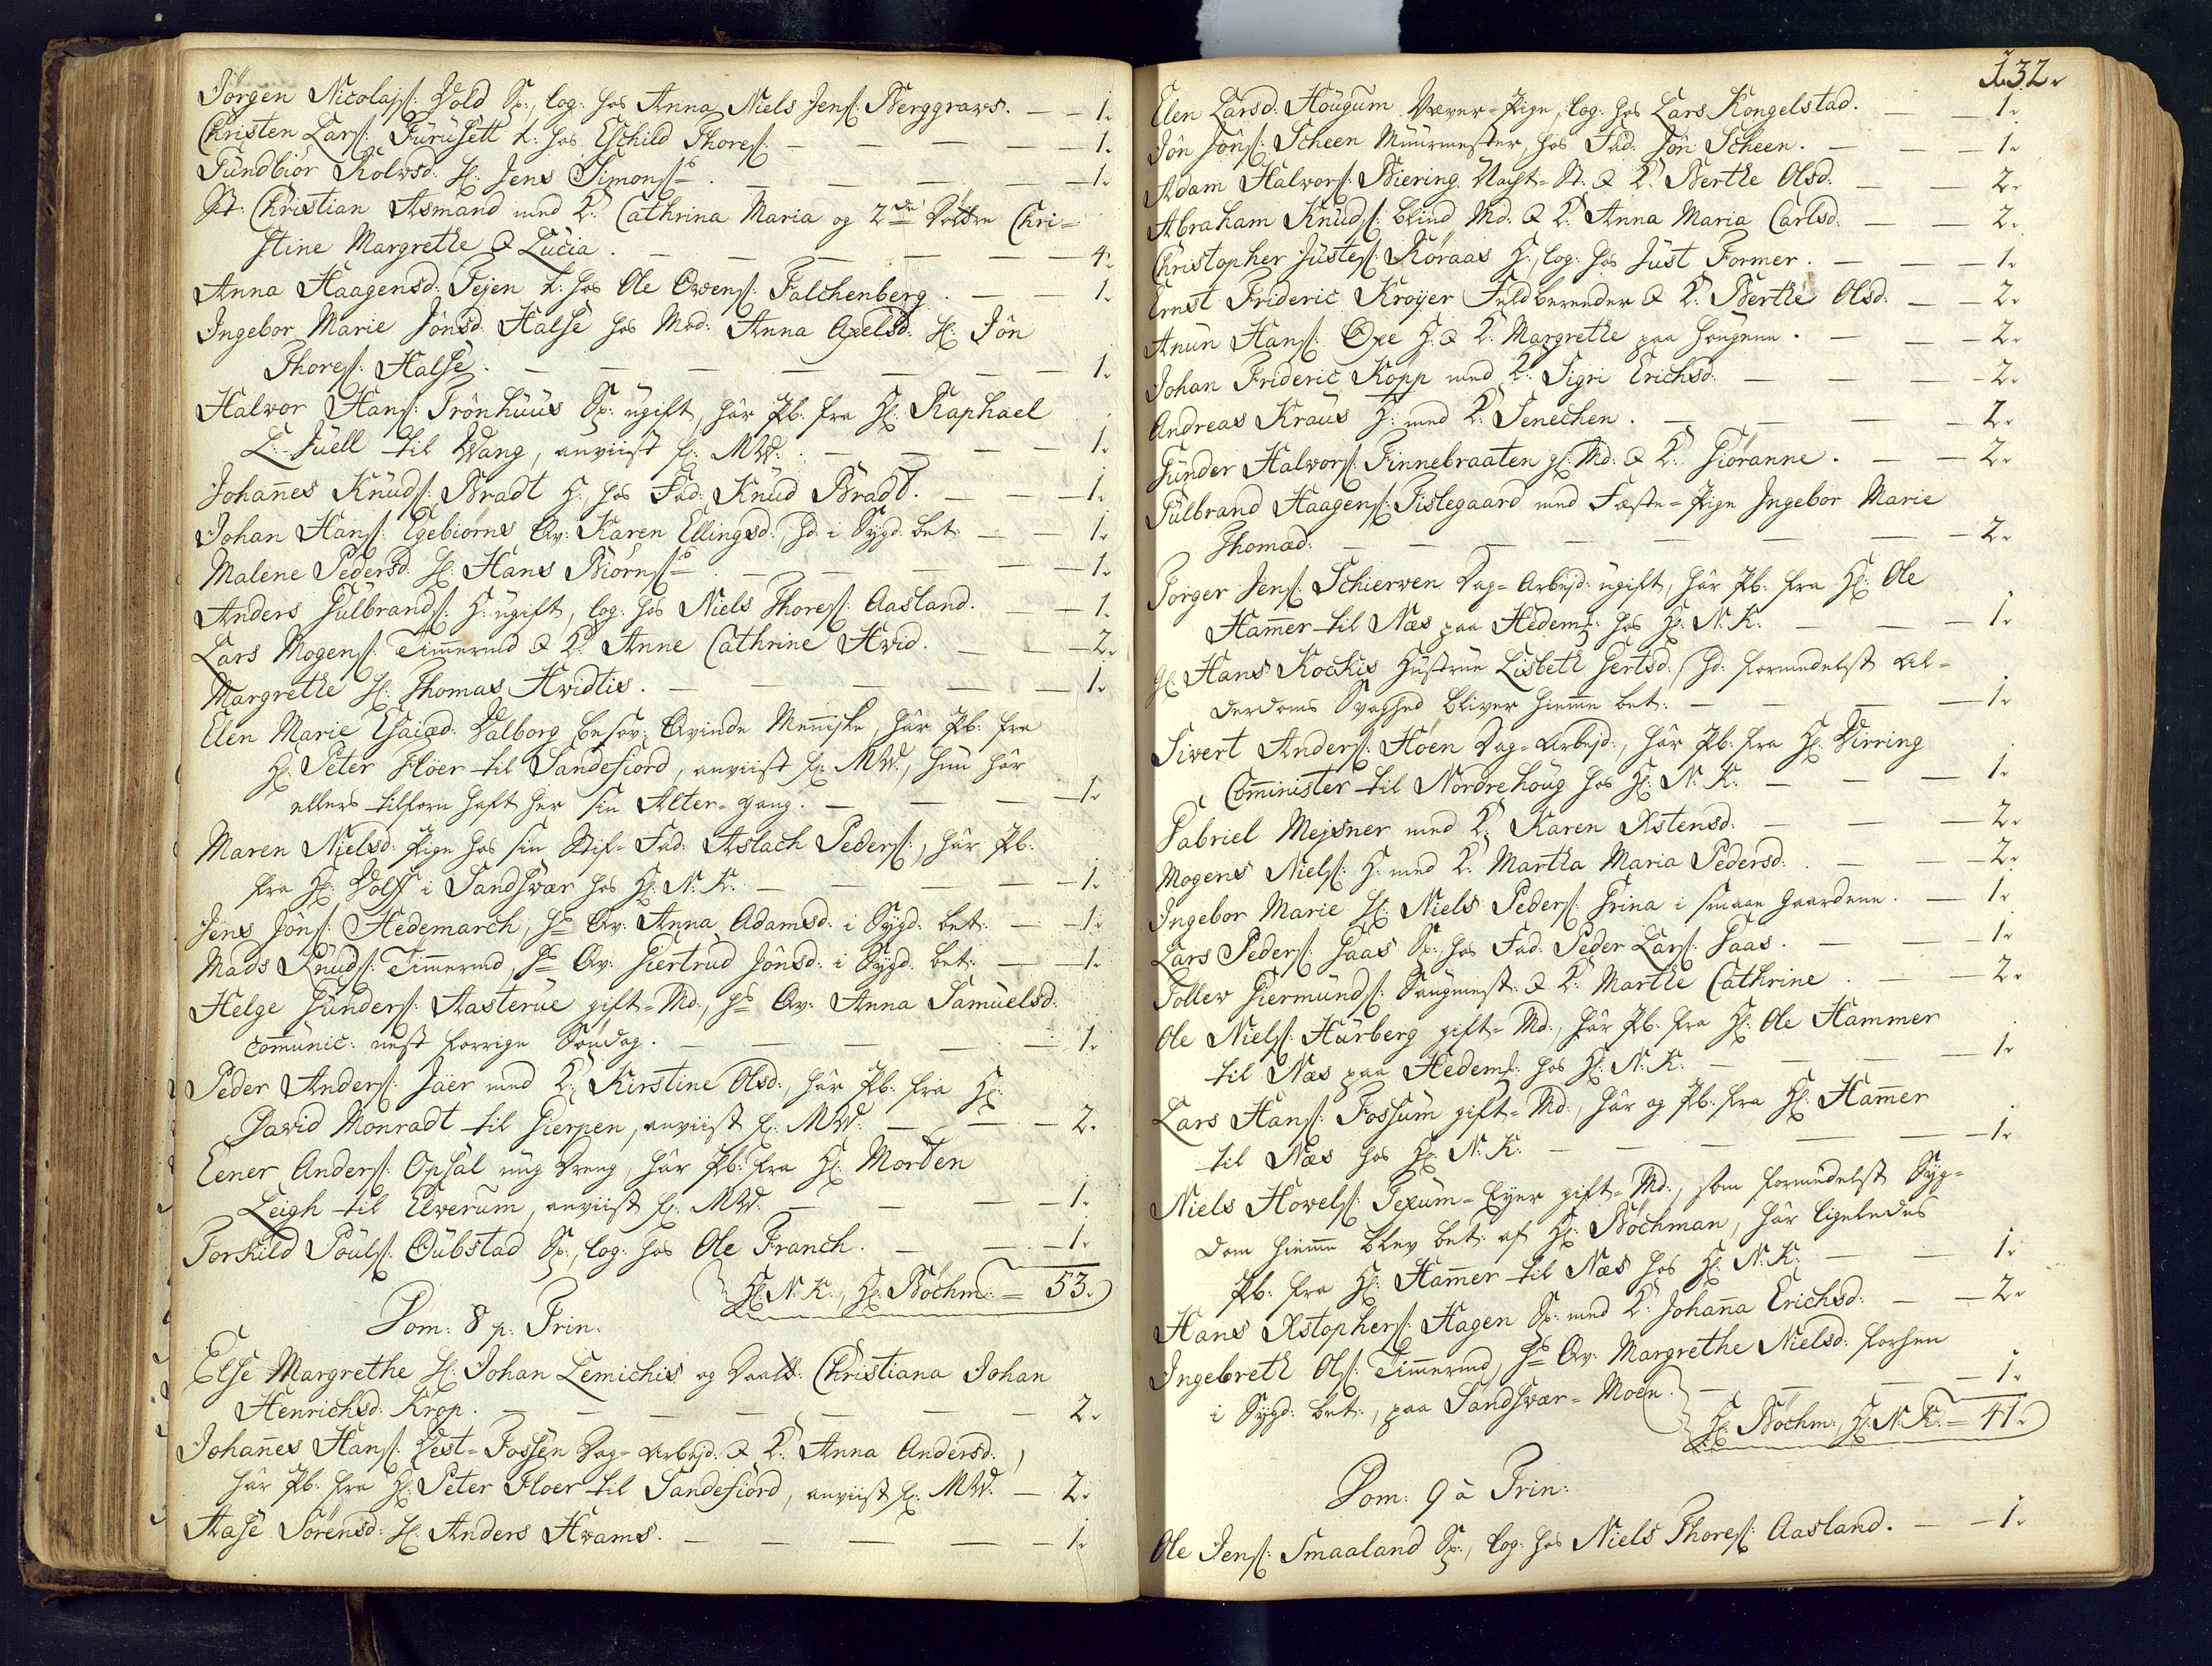 Jørgen Nicolajs: Vold Sp:, log: hos Anna Niels Jens: Berggravs. — — 1.
Christen Lars: Furusett L: hos Eschild Thores: — — — — — 1.
Gundbiør Rolvsd: Sl: Jens Simons: — — — — — 1.
St: Christian Asmand med K: Cathrina Maria og 2de Døttre Chri=
stine Margrethe & Lucia. — — — — — — 4.
Anna Haagensd: Tejen L: hos Ole Owens: Falchenberg. — — 1.
Ingebor Marie Jonsd: Halse hos Mod: Anna Axelsd: Sl: Jon
Thores: Halse. — — — — — — — 1.
Halvor Hans: Tronhuus Sp: ugift, har Pb: fra Hr: Raphael
L: Juell til Wang, anviist hr: MW: — — — — 1.
Johanes Knuds: Bradt H:, hos Fad: Knud Bradt. — — — 1.
Johan Hans: Egebiørns Qv: Karen Ellingsd: Hd: i Sygd: bet: — — 1.
Malene Pedersd: Sl: Hans Biørns: — — — — — 1.
Anders Gulbrands: H: ugift, log: hos Niels Thores: Aasland. — — 1.
Lars Mogens: Timermd & K: Anne Cathrine Hvid. — — — 2.
Margrethe Sl: Thomas Hvidtis. — — — — — 1.
Elen Marie Esaiæd: Valborg besov: Qvinde Meniske, har Pb: fra
Hr: Peter Floer til Sandefiord, anviist hr: MW:, hun har
ellers tilforn haft her sin Alter=gang. — — — — 1.
Maren Nielsd: Pige hos sin Stif=Fad: Aslach Peders:, har Pb:
fra Hr: Wolff i Sandsvær hos Hr: N: K: — — — — — 1.
Jens Jons: Hedemarch, hs Qv: Anna Adamsd: i Sygd: bet: — — 1.
Mads Knuds: Timermd, hs Qv: Giertrud Jonsd: i Sygd: bet: — — 1.
Helge Gunders: Aasterue gift=Md:, hs Qv: Anna Samuelsd:
comunic: nest forrige Søndag. — — — — — 1.
Peder Anders: Jaer med K: Kirstine Olsd:, har Pb: fra Hr:
David Monradt til Gierpen, anviist hr: MW: — — — 2.
Eener Anders: Opsal ung Dreng, har Pb: fra Hr: Morten
Leigh til Elverum, anviist hr: MW: — — — — 1.
Torkild Pouls: Oubstad Sp:, log: hos Ole Franch. — — — 1.
Hr: N: K:, Hr: Bøchm: = 53.
Dom: 8 p: Trin:
Else Margrethe Sl: Johan Lemichis og Daatt: Christiana Johan
Henrichsd: Krop. — — — — — — — 2.
Johanes Hans: Vest=Fossen Dag=arbejd: & K: Anna Andersd:,
har Pb: fra Hr: Peter Floer til Sandefiord, anviist hr: MW: — 2.
Aase Sørensd: Sl: Anders Hvams. — — — — — 1.
132.
Elen Larsd: Hougum Væver=Pige, log: hos Lars Kongelstad. — — 1.
Jon Jons: Scheen Muurmester, hos Fad: Jon Scheen. — — — 1.
Adam Halvors: Biering Nagt=St: & K: Berthe Olsd: — — 2.
Abraham Knuds: blind Md: & K: Anna Maria Carlsd: — — 2.
Christopher Justes: Røraas H:, log: hos Just Former. — — — 1.
Ernst Frideric Krøyer Fuldbereeder & K: Berthe Olsd: — — 2.
Anun Hans: Oxe H: & K: Margrethe paa Haugene. — — — 2.
Johan Frideric Kopp med K: Sigri Erichsd: — — — — 2.
Andreas Kraus H: med K: Lenechen. — — — — 2.
Gunder Halvors: Finnebraaten gl: Md: & K: Giøranne. — — 2.
Gulbrand Haagens: Gislegaard med Fæste=Pige Ingebor Marie
Thomæd: — — — — — — — — 2.
Torger Jens: Schierven Dag=Arbejd: ugift, har Pb: fra Hr: Ole
Hamer til Næs paa Hedem: hos Hr: N: K: — — — 1.
Gl: Hans Kockis Hustrue Lisbeth Gertsd: Hd: formedelst Al=
derdoms Svaghed bliver hieme bet: — — — — 1.
Sivert Anders: Høen Dag=Arbejd:, har Pb: fra Hr: Virring
Cominister til Nordrehoug hos Hr: N: K: — — — 1.
Gabriel Mejsner med K: Karen Xstensd: — — — 2.
Mogens Niels: H: med K: Martha Maria Pedersd: — — — 2.
Ingebor Marie Sl: Niels Peders: Grina i smaae Gaardene. — 1.
Lars Peders: Gaas Sp: hos Fad: Peder Lars: Gaas. — — — 1.
Tollev Giermunds: Saugmest: & K: Marthe Cathrine. — — 2.
Ole Niels: Hurberg gift=Md:, har Pb: fra Hr: Ole Hammer
til Næs paa Hedem: hos Hr: N: K: — — — — 1.
Lars Hans: Fossum gift=Md:, har og Pb: fra Hr: Hamer
til Næs hos Hr: N: K: — — — — — 1.
Niels Hovels: Texum=Eyer gift=Md:, som formedelst Syg=
dom hieme blev bet: af Hr: Bøchman, har ligeledes
Pb: fra Hr: Hamer til Næs hos Hr: N: K: — — 1.
Hans Xstophers: Hagen Sp: med K: Johana Erichsd: — — 2.
Ingebreth Ols: Timermd, hs Qv: Margrethe Nielsd: forhen
i Sygd: bet:, paa Sandsvær=Moen. — — — — 1.
Hr: Bøchm:, Hr: N: K: = 41.
Dom: 9 à Trin:
Ole Jens: Smaaland Sp:, log: hos Niels Thores: Aasland. — — 1.